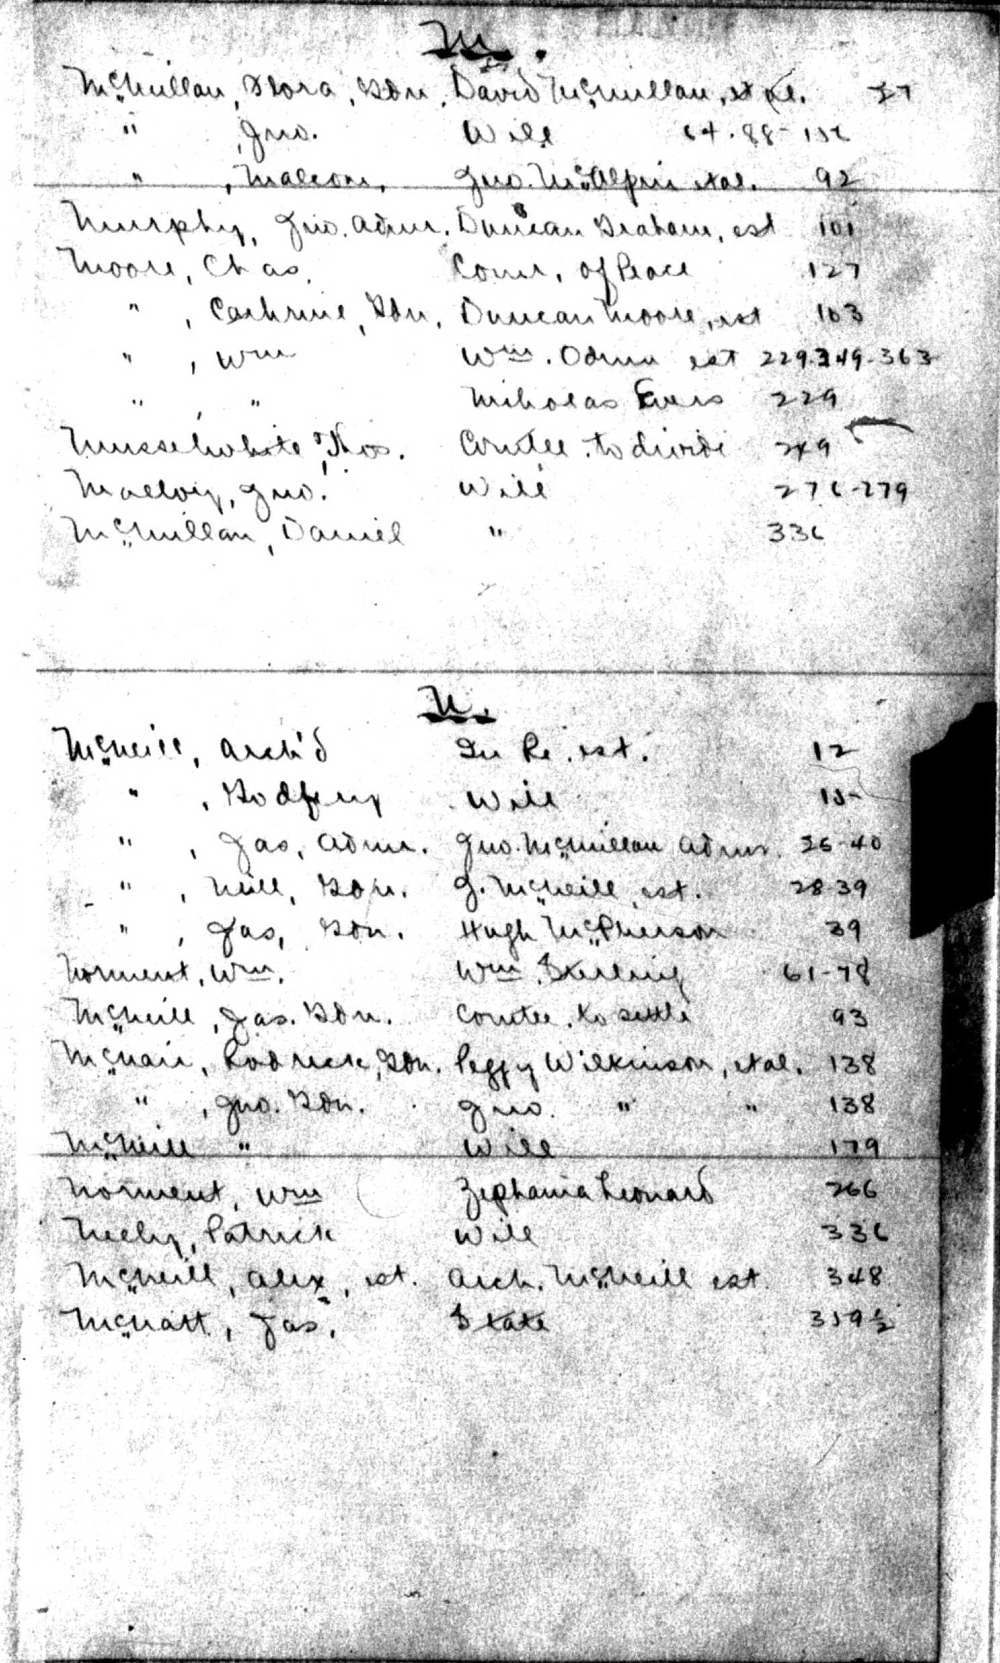 M.
McMillan, Flora, Gdn. David McMillan, et al. 27
" , Jno. Will 64-88-
" , Malcom, Jno. McAlpin et al. 92
Murphy, Jno. Admr. Duncan Graham, est 101
Moore, Chas. Comr. of Peace 127
" , Cathrine, Gdn. Duncan Moore, est 103
" , Wm Wm. Odum est 229-349-363
" , " Nicholas 229
Musselwhite, Thos. Comtee. to divide 249
Jno. Will 276-279
McMillan, Daniel " 336
N.
McNeill, Arch'd In Re. est. 12
" , Godfrey Will 15
" , Jas, Admr. Jno. McMillan Admr. 26-40
" , Neill, Gdn. J. McNeill, est. 28-39
" , Jas, Gdn. Hugh McPherson 39
Norment, Wm. Wm. Sterling 61-78
McNeill, Jas. Gdn. Comtee. to settle 93
McNair, Rodrick, Gdn. Peggy Wilkinson, et al. 138
" , Jno. Gdn. Jno. " " 138
McNeill " Will 179
Norment, Wm Zephania Leonard 266
Neely, Patrick Will 336
McNeill, Alex, est. Arch. McNeill est 348
McNatt, Jas, State 359½